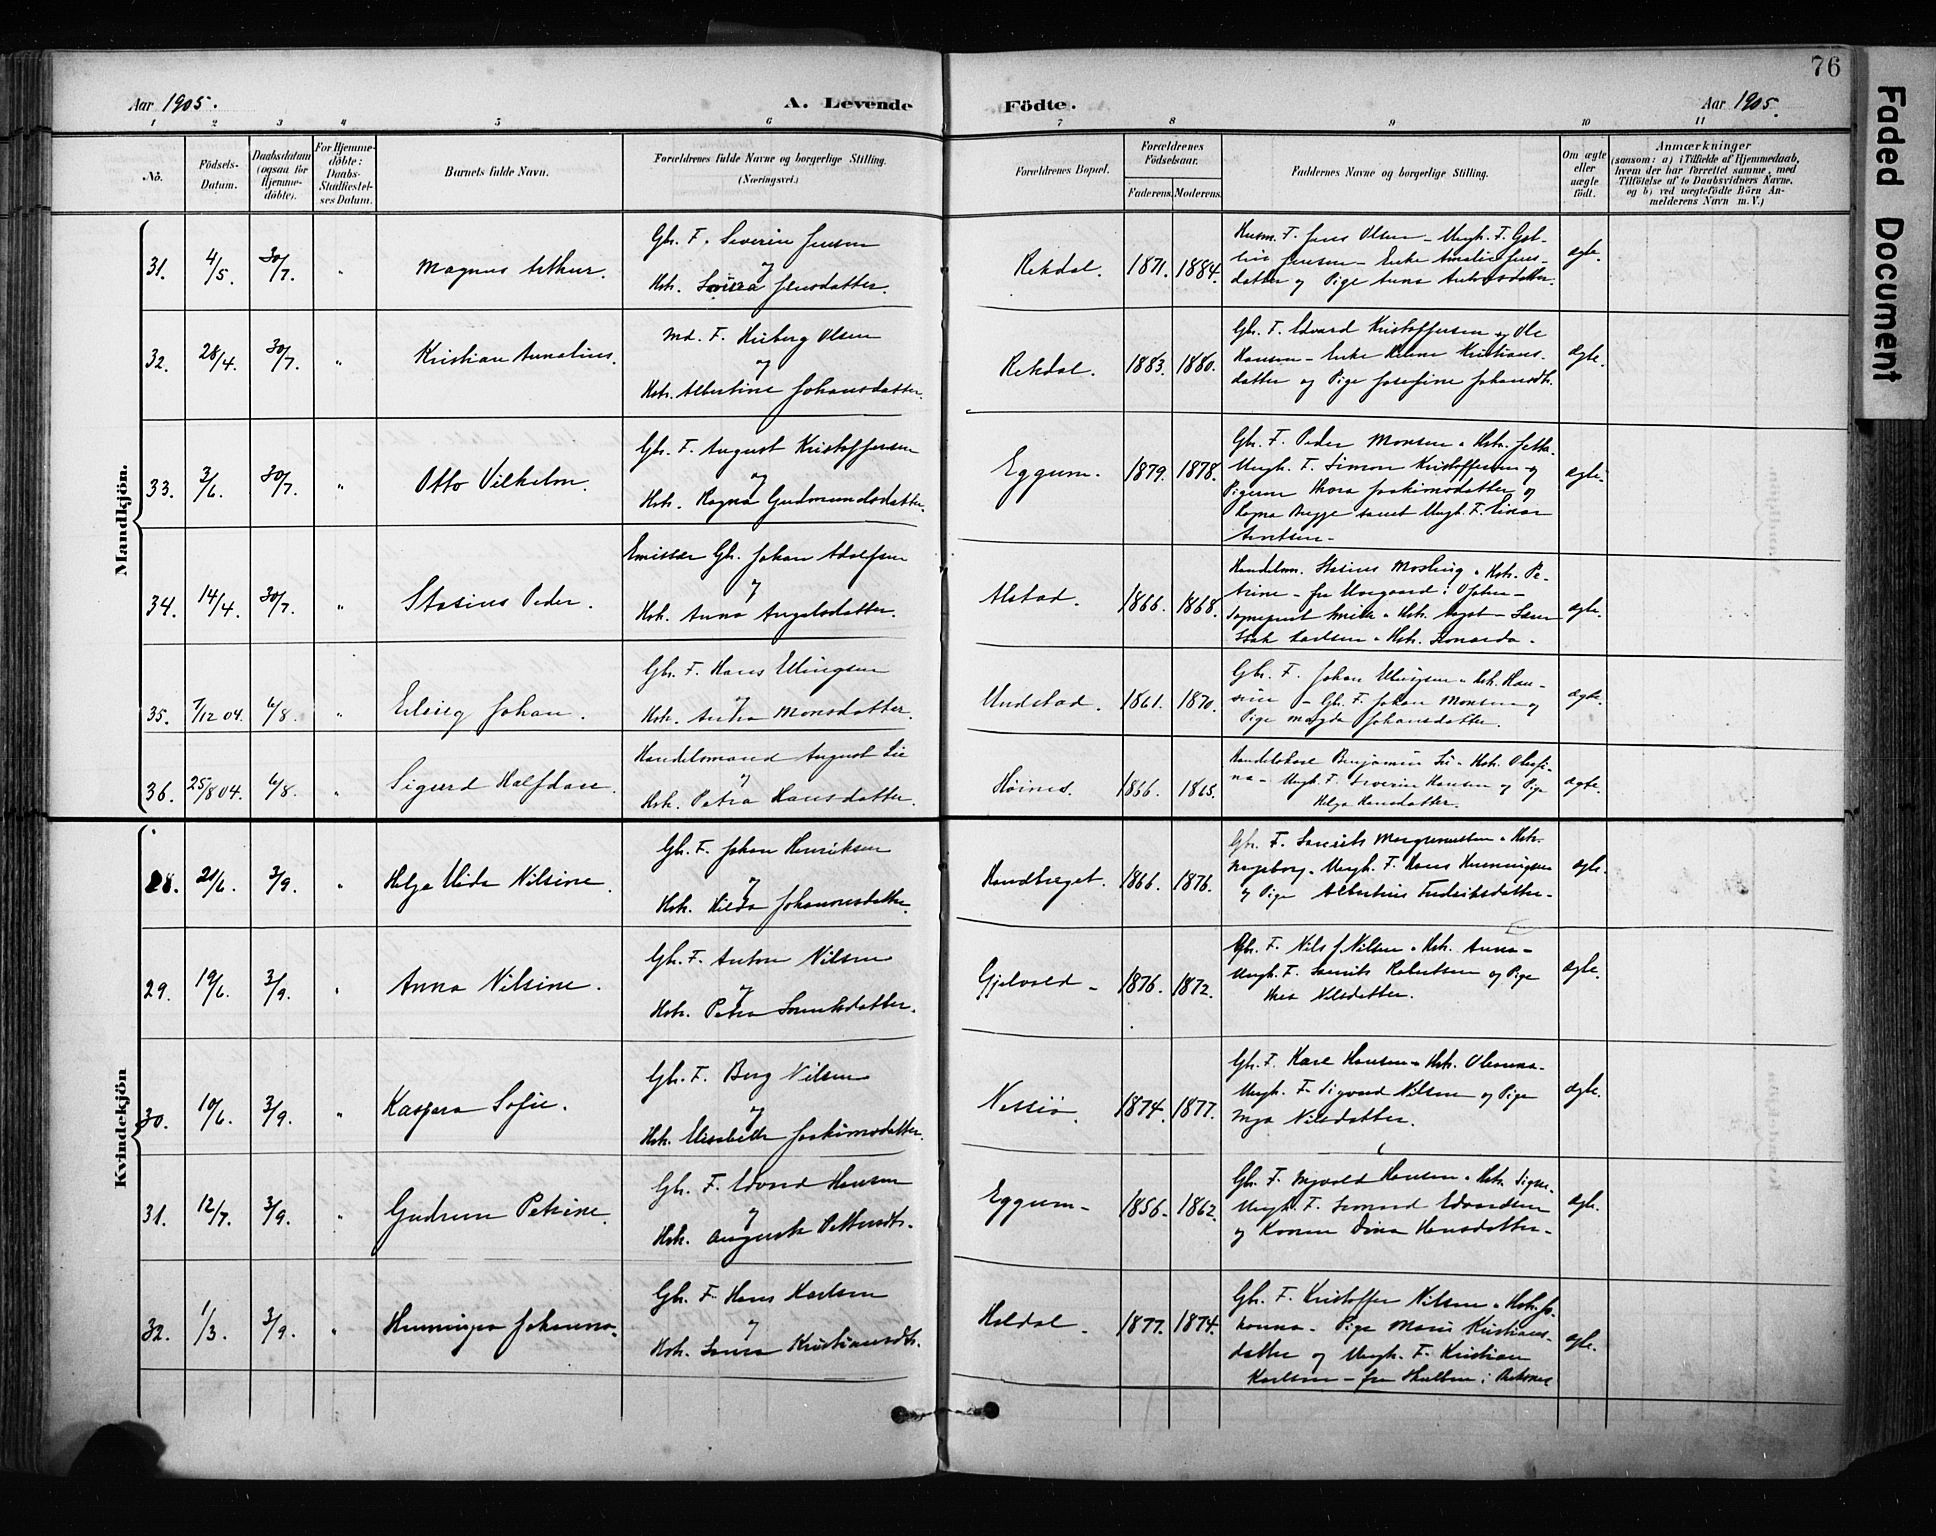 76
Faded Document
Aar 1905.
A. Levende
Födte.
Aar 1905.
1 2 3 4 5 6 7 8 9 10 11
No.
Födsels-
Datum.
Daabsdatum
(ogsaa för
Hjemme-
döbte).
For Hjemme-
döbte:
Daabs-
Stadfæstel-
ses Datum.
Barnets fulde Navn.
Forældrenes fulde Navne og borgerlige Stilling.
(Næringsvei.)
Forældrenes Bopæl.
Forældrenes
Födselsaar.
Faderens. Moderens.
Faddernes Navne og borgerlige Stilling.
Om ægte
eller
uægte
födt.
Anmærkninger
(saasom: a) i Tilfælde af Hjemmedaab,
hvem der har forrettet samme, med
Tilföielse af to Daabsvidners Navne,
og b) ved uægtefödte Börn An-
melderens Navn m. V.)
Mandkjön.
31. 4/5. 30/7. " Magnus Arthur.
Gbr. F. Severin Jensen
og
Hstr. Jensdatter.
Rekdal. 1871. 1884.
Husm. F. Jens Olsen - Ungk. F.
Jensen - Enke Amalie Jens-
datter og Pige Anna
ægte.
32. 28/4. 30/7. " Kristian Annalius.
Md. F. Hilberg Olsen
og
Hstr. Albertine Johansdatter.
Rekdal. 1883. 1880.
Gbr. F. Edvard Kristoffersen og Ole
Hansen - Enke Helene Kristians-
datter og Pige Josefine Johansdtr.
ægte.
33. 3/6. 30/7. " Otto Vilhelm.
Gbr. F. August Kristoffersen
og
Hstr. Ragna Gudmundsdatter.
Eggum. 1879. 1878.
Gbr. F. Peder Monsen " Hstr.
Ungk. F. Simon Kristoffersen og
Pigerne Thora Joakimsdatter og
Ragna Brygge samt Ungk. F. Einar
Arntsen -
ægte.
34. 14/4. 30/7. " Stasius Peder.
Emissær Gbr. Johan Adolfsen
og
Hstr. Anna Angelsdatter.
Alstad. 1866. 1868.
Handelsm. Stasius " Hstr. Pe-
trine -
Sogneprest " Hstr.
Karlsen " Hstr. Leonarda.
ægte.
35. 7/12 04. 6/8. " Elling Johan.
Gbr. F. Hans Ellingsen
og
Hstr. Andrea Monsdatter.
Undstad. 1861. 1870.
Gbr. F. Johan Ellingsen " Hstr. Han-
sine - Gbr. F. Johan Monsen og
Pige Magda Johansdatter.
ægte.
36. 25/8 04. 6/8. " Sigurd Halfdan.
Handelsmand August Lie
og
Hstr. Petra Hansdatter.
Höines. 1866. 1865.
Benjamin Lie " Hstr. Olufi-
na - Ungk. F. Severin Hansen og Pige
Helga Hansdatter.
ægte.
Kvindekjön
28. 21/6. 3/9. " Helga Uida Nilsine.
Gbr. F. Johan Henriksen
og
Hstr. Hilda Johannesdatter.
1866. 1876.
Gbr. F. Laurits " Hstr.
Ingeborg - Ungk. F. Hans Henningsen
og Pige Albertine Fredriksdatter -
ægte.
29. 19/6. 3/9. " Anna Nilsine.
Gbr. F. Anton Nilsen
og
Hstr. Petra
Gjelvold - 1876. 1872.
Gbr. F. Nils J. Nilsen " Hstr. Anna -
Ungk. F. Laurits Robertsen og Pige
Thea Nilsdatter.
ægte.
30. 10/6. 3/9. " Kaspara Sofie.
Gbr. F. Berg Nilsen
og
Hstr. Elisabeth Joakimsdatter.
1874. 1877.
Gbr. F. Karl Hansen " Hstr. Oleanna -
Ungk. F. Sigvard Nilsen og Pige
Inga Nilsdatter.
ægte.
31. 12/7. 3/9. " Gudrun Petrine.
Gbr. F. Edvard Hansen
og
Hstr. Augusta Pettersdtr.
Eggum - 1856. 1862.
Gbr. F. Ingvald Hansen " Hstr. Signe.
Ungk. F. Edvardsen
og Konen Dina Hansdatter -
ægte.
32. 1/3. 3/9. " Henningra Johanna.
Gbr. F. Hans Karlsen
og
Hstr. Laura Kristiansdtr.
Holdal. 1877. 1874.
Gbr. F. Kristoffer Nilsen " Hstr. Jo-
hanna - Pige Marie Kristians-
datter og Ungk. F. Kristian
Karlsen - fra
ægte.